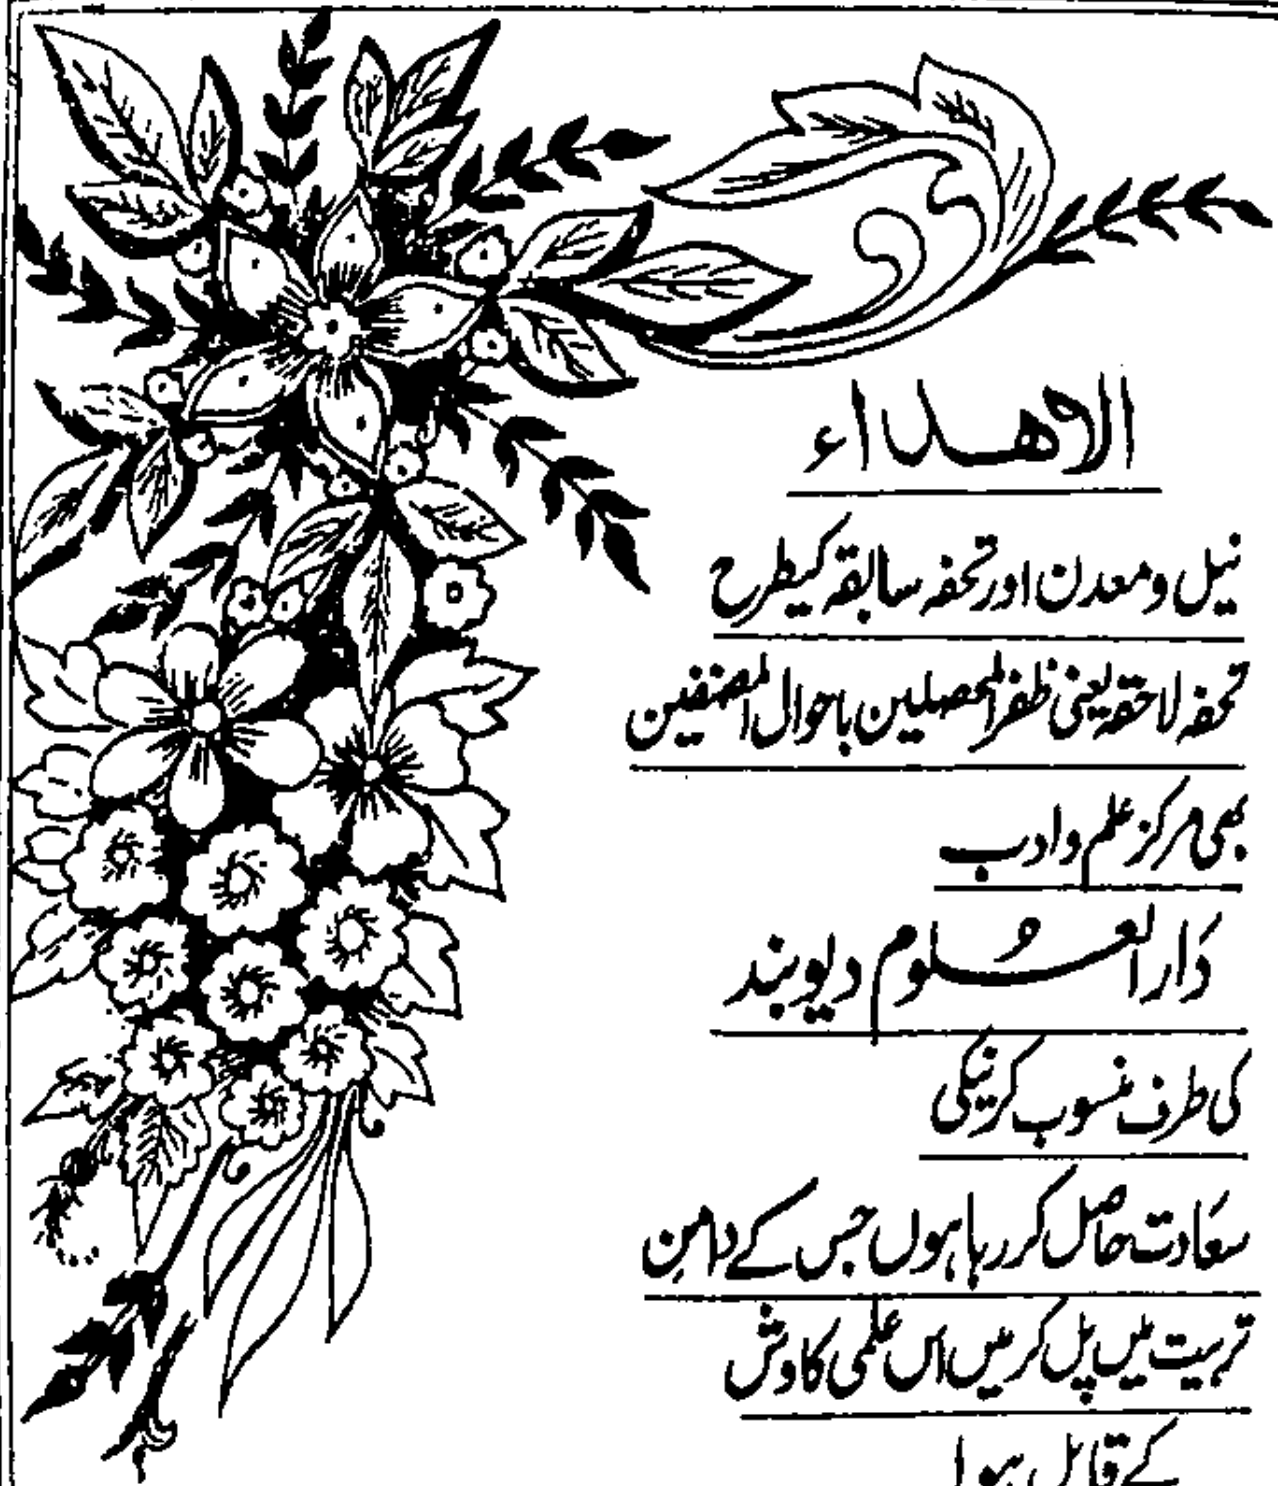 الاهداء
نیل و معدن اور تحفہ سابقہ کیطرح
تحفہ لاحقہ یعنی ظفر المحصلین باحوال المصنفین
بھی مرکز علم و ادب
دَارالعُلوم دیوبند
کی طرف منسوب کرنیکی
سعَادت حاصل کر رہا ہوں جس کے دامن
تربیت میں پل کر میں اس علمی کاوش
کے قابل ہوا